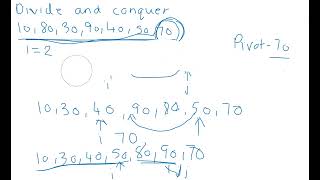 Divide and conquer
10,80,30,90,40,50,70
Pivot-70
i=2
i
j
10,30,40,90,80,50,70
i 70
10,30,40,50,80,90,70
i
j